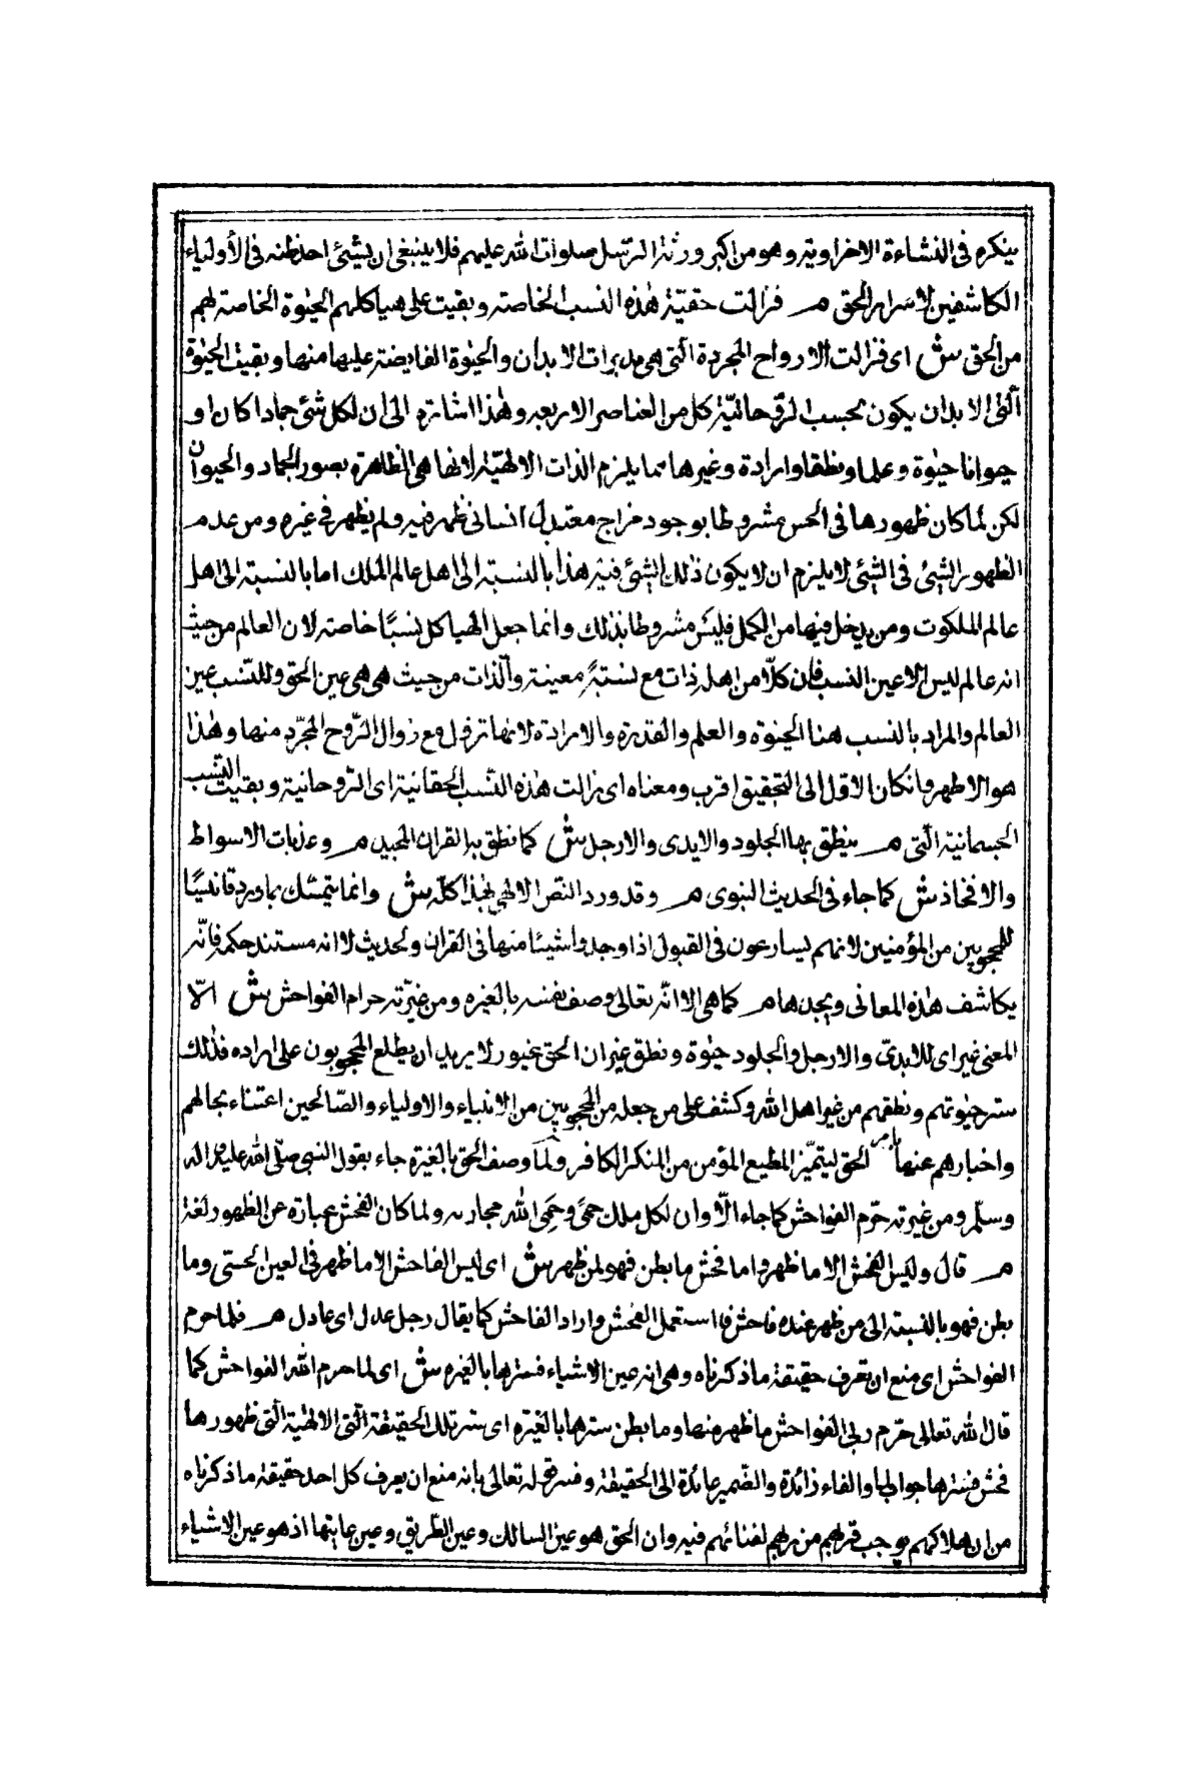 ينكره فى النشاءة الاخراوية وهو من اكبر ورثة الرّسل صلوات الله عليهم فلا ينبغى ان يسيئ احد ظنه فى الأولياء
الكاشفين لاسرار الحق مـ فزالت حقيّة هٰذه النسب الخاصة وبقيت على هياكلهم الحيٰوة الخاصة لهم
من الحق ش اى فزالت الارواح المجردة الّتى هى مدبرات الابدان والحيٰوة الفايضة عليها منها وبقيت الحيٰوة
الّتى الابدان يكون بحسب الرّوحانيّة كل من العناصر الاربعه وهٰذا اشارة الى ان لكل شئ جمادا كان او
حيوانا حيٰوة وعلما ونطقا وارادة وغيرها مما يلزم الذات الالٰهيّة لانها هى الظاهرة بصور الجماد والحيوان
لكن لما كان ظهورها فى الحس مشروطا بوجود مزاج معتدل انسانى ظهر فيه ولم يظهر فى غيره ومن عدم
الظهور الشئ فى الشئ لا يلزم ان لا يكون ذٰلك الشئ فيه هذا بالنسبة الى اهل عالم الملك اما بالنسبة الى اهل
عالم الملكوت ومن يدخل فيها من الكمل فليس مشروطا بذلك وانما جعل الهياكل نسبًا خاصة لان العالم من حيث
انه عالم ليس الّا عين النسب فان كلّا من اهله ذات مع نسبةٍ معينة والذات من حيث هى هى عين الحق وللنّسب عين
العالم والمراد بالنسب هنا الحيٰوة والعلم والقدرة والارادة لانها تزول مع زوال الرّوح المجرّد منها وهٰذا
هو الاظهر وانكان الاول الى التحقيق اقرب ومعناه اى زالت هٰذه النّسب الحقانية اى الرّوحانية وبقيت النّسب
الجسمانية الّتى مـ ينطق بها الجلود والايدى والارجل ش كما نطق به القران المجيد مـ وعذبات الاسواط
والافخاذ ش كما جاء فى الحديث النبوى مـ وقد ورد النصّ الالٰهى بهٰذا كلّه ش وانما يتمسّك بما ورد تانيسًا
للمحجوبين من المؤمنين لانهم يسارعون فى القبول اذا وجدوا شيئا منها فى القران والحديث لا انه مستند حكمه فانّه
يكاشف هٰذه المعانى ويجدها مـ كما هى الا انّه تعالى وصف نفسه بالغيرة ومن غيرته حرام الفواحش ش الّا
المعنى غير اى للايدى والارجل والجلود حيٰوة ونطق غير ان الحق غيور لا يريد ان يطلع المحجوبون على اسراره فلذٰلك
ستر حيٰوتهم ونطقهم من غير اهل الله وكشف على من جعله من المحجوبين من الانبياء والاولياء والصّالحين اعتناء بحالهم
واخبارهم عنها بامر الحق ليتميّز المطيع المؤمن من المنكر الكافر ولمّا وصف الحق بالغيرة جاء بقول النبى صلّى الله عليه واله
وسلّم ومن غيرته حرّم الفواحش كما جاء الّا وان لكل ملك حمًى وحمى الله محارمه ولما كان الفحش عبارة عن الظهور لغة
مـ قال وليس الفحش الا ما ظهر واما فحش ما بطن فهو لمن ظهر ش اى ليس الفاحش الا ما ظهر فى العين الحسّى وما
بطن فهو بالنسبة الى من ظهر عنده فاحش فاستعمل الفحش واراد الفاحش كما يقال رجل عدل اى عادل مـ فلما حرم
الفواحش اى منع ان تعرف حقيقة ما ذكرناه وهى انه عين الاشياء فسترها بالغيرة ش اى لما حرم الله الفواحش كما
قال الله تعالى حرّم ربى الفواحش ما ظهر منها وما بطن سترها بالغيرة اى ستر تلك الحقيقة الّتى الالٰهية الّتى ظهورها
فحش فسترها جواب لما والفاء زائدة والضّمير عائدة الى الحقيقة وفسر قوله تعالى بانه منع ان يعرف كل احد حقيقة ما ذكرناه
من ان هلاكهم يوجب قربهم من ربهم لفنائهم فيه وان الحق هو عين السالك وعين الطّريق وعين غايتها اذ هو عين الاشياء